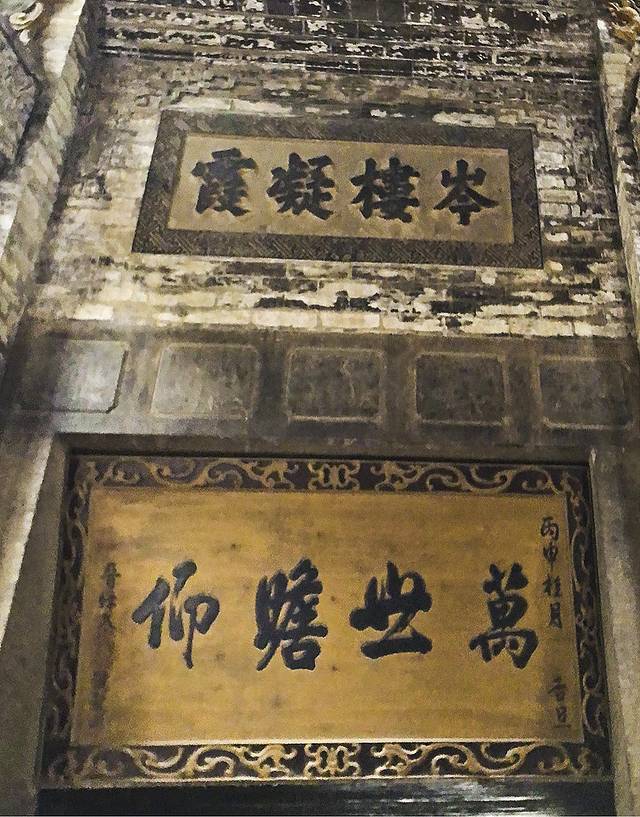 岑樓凝霞
萬世瞻仰
丙申桂月